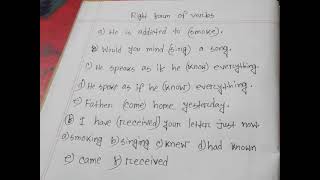 Right form of verbs
a) He is addicted to (smoke).
b) Would you mind (sing) a song.
c) He speaks as if he (know) everything.
d) He spoke as if he (know) everything.
e) Father (come) home yesterday.
f) I have (received) your letter just now.
a) smoking b) singing c) knew d) had known
e) came f) received